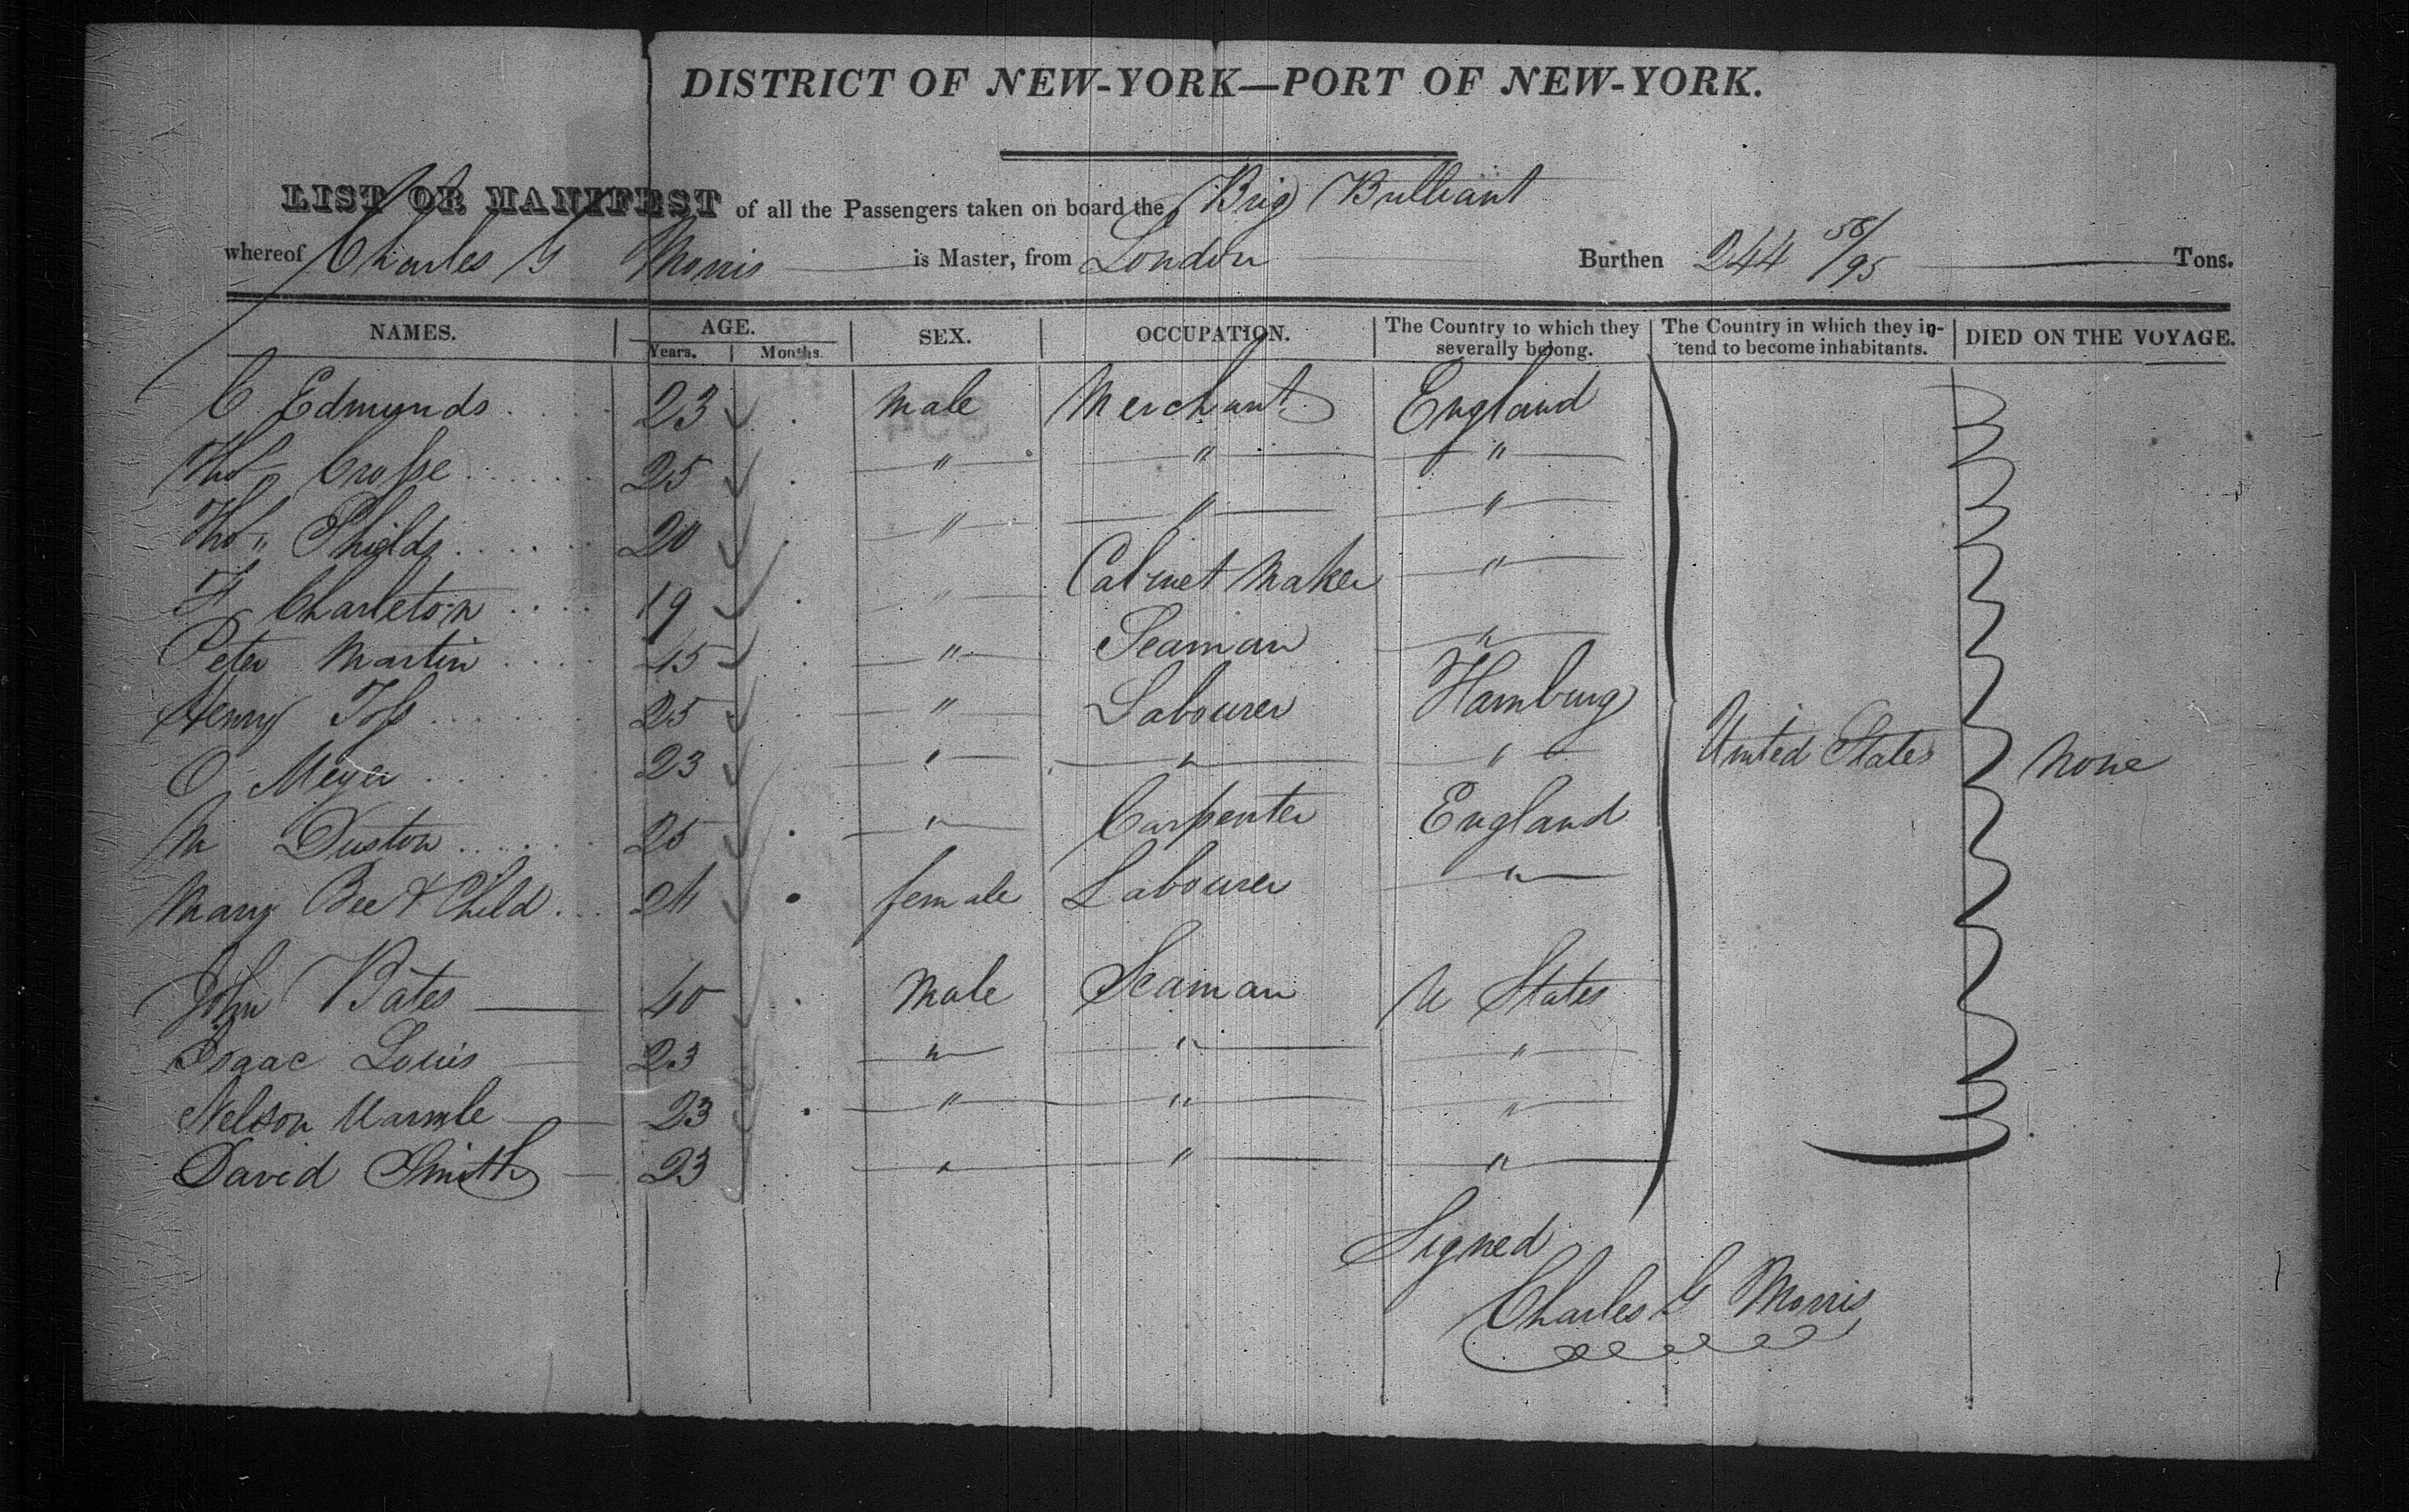 DISTRICT OF NEW-YORK—PORT OF NEW-YORK.
LIST OR MANIFEST of all the Passengers taken on board the Brig Brilliant
whereof Charles G Morris is Master, from London Burthen 244 58/95 Tons.
NAMES. AGE. SEX. OCCUPATION. The Country to which they severally belong. The Country in which they intend to become inhabitants. DIED ON THE VOYAGE.
Years. Months.
C Edmunds 23 male Merchant England
Tho" Crosse 25 " " "
Tho" Shields 20 " " "
F Charleton 19 " Cabinet Maker "
Peter Martin 45 " Seaman "
Henry Toss 25 " Labourer Hamburg
O Meyer 23 " " " United States None
M Duston 25 " Carpenter England
Mary Bee & Child 24 female Labourer "
John Bates 40 Male Seaman U States
Isaac Louis 23 " " "
Nelson 23 " " "
David Smith 23 " " "
Signed
Charles G Morris